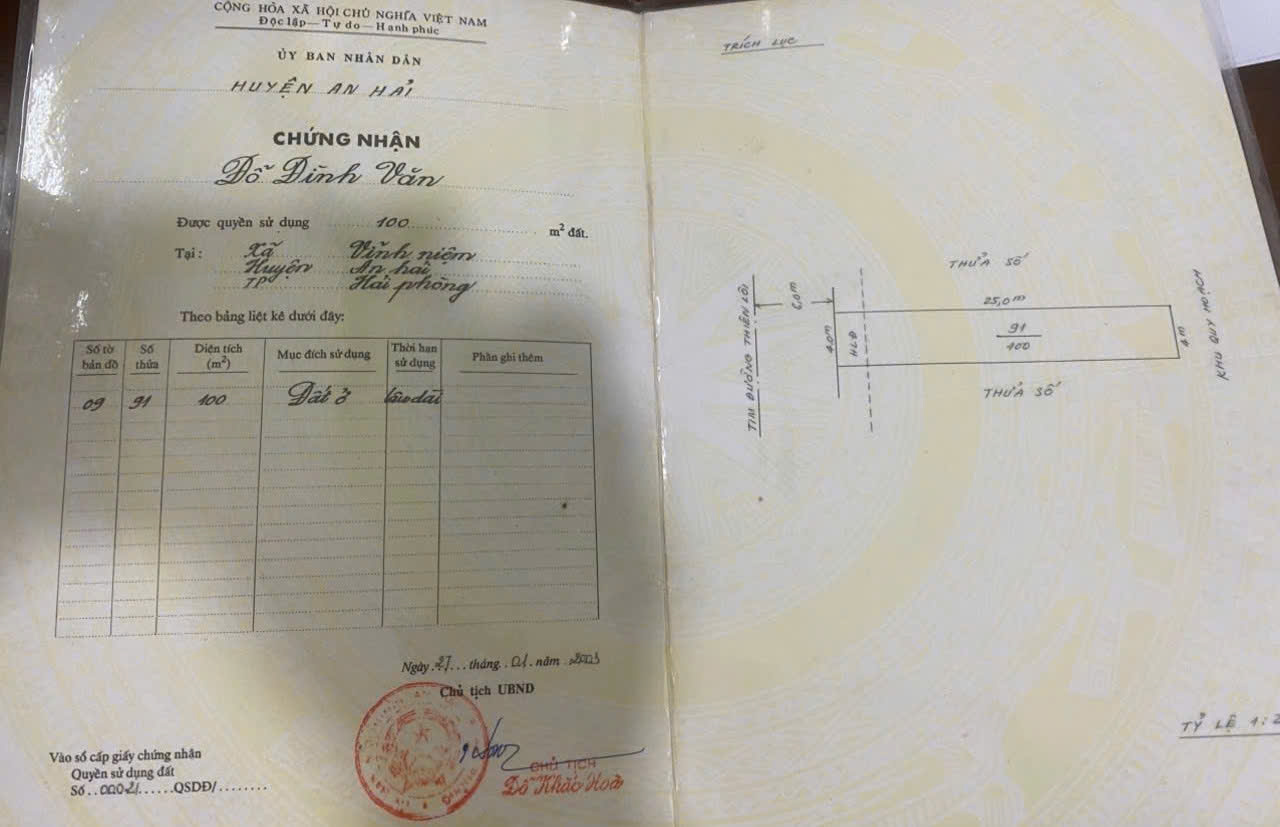 CỘNG HÒA XÃ HỘI CHỦ NGHĨA VIỆT NAM
Độc lập—Tự do—Hạnh phúc
ỦY BAN NHÂN DÂN
HUYỆN AN HẢI
CHỨNG NHẬN
Đỗ Đình Văn
Được quyền sử dụng 100 m² đất.
Tại: Xã Vĩnh niệm
Huyện An hải
TP Hải phòng
Theo bảng liệt kê dưới đây:
Số tờ bản đồ Số thửa Diện tích (m²) Mục đích sử dụng Thời hạn sử dụng Phần ghi thêm
09 91 100 Đất ở lâu dài
Ngày 27 tháng 01 năm 2003
Chủ tịch UBND
CHỦ TỊCH
Đỗ Khắc Hoà
Vào sổ cấp giấy chứng nhận
Quyền sử dụng đất
Số QSDĐ/
TRÍCH LỤC
THỬA SỐ
TIM ĐƯỜNG THIÊN LÔI
6,0m
4,0m
HLĐ
25,0m
91
100
4m
KHU QUY HOẠCH
THỬA SỐ
TỶ LỆ 1:2